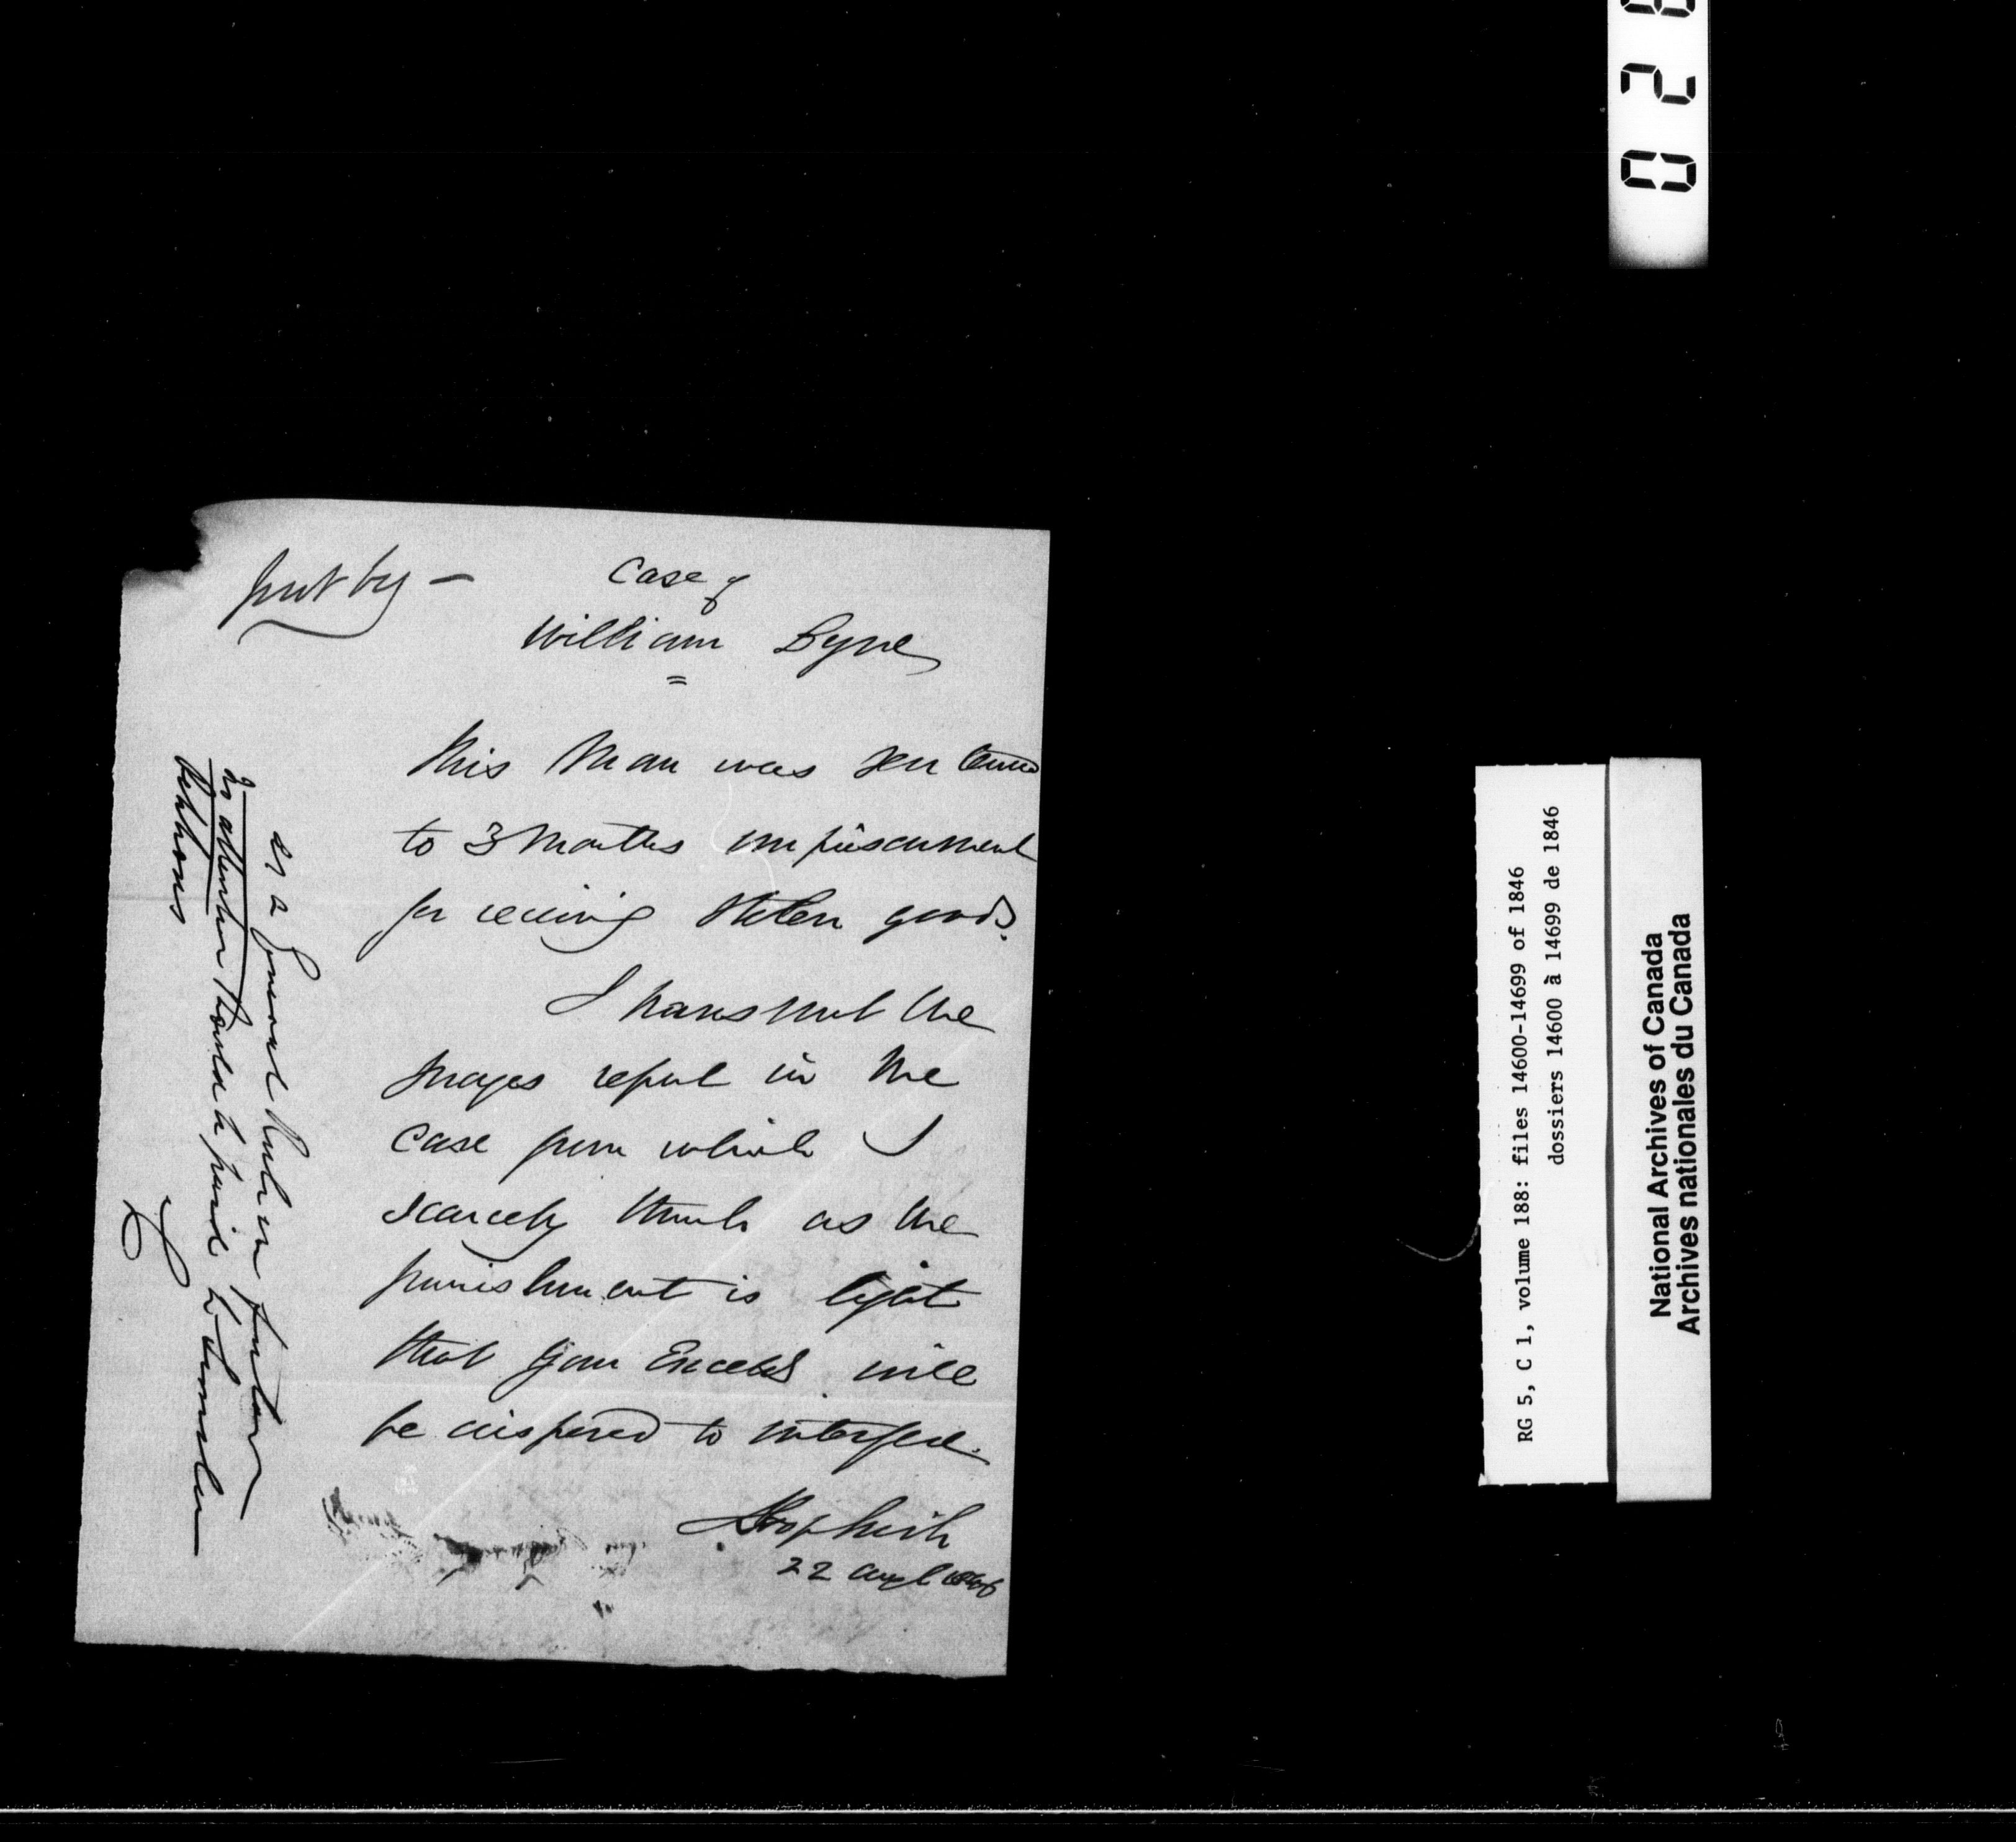 put by —
Case of
William Byne
This Man was sentenced
to 3 Months imprisonment
for receiving Stolen goods.
I transmit the
Judges report in the
case from which I
scarcely think as the
punishment is light
that Your Excell will
be disposed to interfere.
22 Augt 1846
as a General Rule in future
no attention should be paid to similar
Petitions
028
RG 5, C 1, volume 188: files 14600-14699 of 1846
dossiers 14600 à 14699 de 1846
National Archives of Canada
Archives nationales du Canada